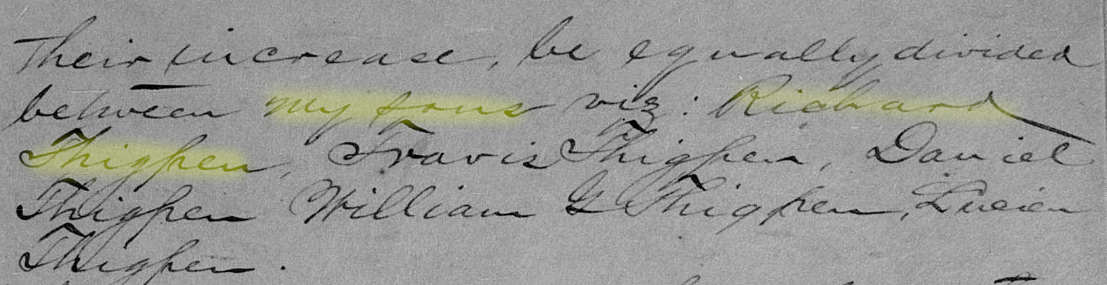 their increase, be equally divided
between my sons viz: Richard
Thigpen, Travis Thigpen, Daniel
Thigpen William G Thigpen, Lucien
Thigpen.